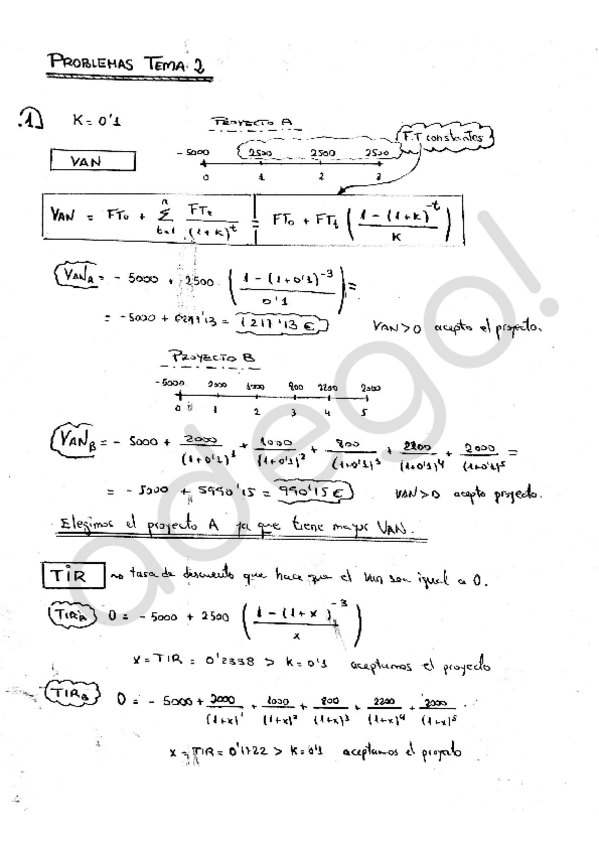 PROBLEMAS TEMA 2
1 K = 0'1 PROYECTO A
F.T constantes
VAN
-5000 2500 2500 2500
0 1 2 3
VAN = FT₀ + Σ(t=1, n) FTt / (1+K)^t = FT₀ + FTt ( (1 - (1+K)^-t) / K )
VAN_A = - 5000 + 2500 · ( (1 - (1+0'1)^-3) / 0'1 ) =
= -5000 + 6217'13 = 1217'13 € VAN>0 acepto el proyecto.
PROYECTO B
-5000 2000 1000 800 2200 2000
0 1 2 3 4 5
VAN_B = - 5000 + 2000/(1+0'1)^1 + 1000/(1+0'1)^2 + 800/(1+0'1)^3 + 2200/(1+0'1)^4 + 2000/(1+0'1)^5 =
= - 5000 + 5990'15 = 990'15 € VAN>0 acepto proyecto.
Elegimos el proyecto A ya que tiene mayor VAN.
TIR tasa de descuento que hace que el VAN sea igual a 0.
TIR_A 0 = - 5000 + 2500 ( (1 - (1+x)^-3) / x )
x = TIR = 0'2338 > K = 0'1 aceptamos el proyecto
TIR_B 0 = - 5000 + 2000/(1+x)^1 + 1000/(1+x)^2 + 800/(1+x)^3 + 2200/(1+x)^4 + 2000/(1+x)^5
x = TIR = 0'1722 > K = 0'1 aceptamos el proyecto
adego!